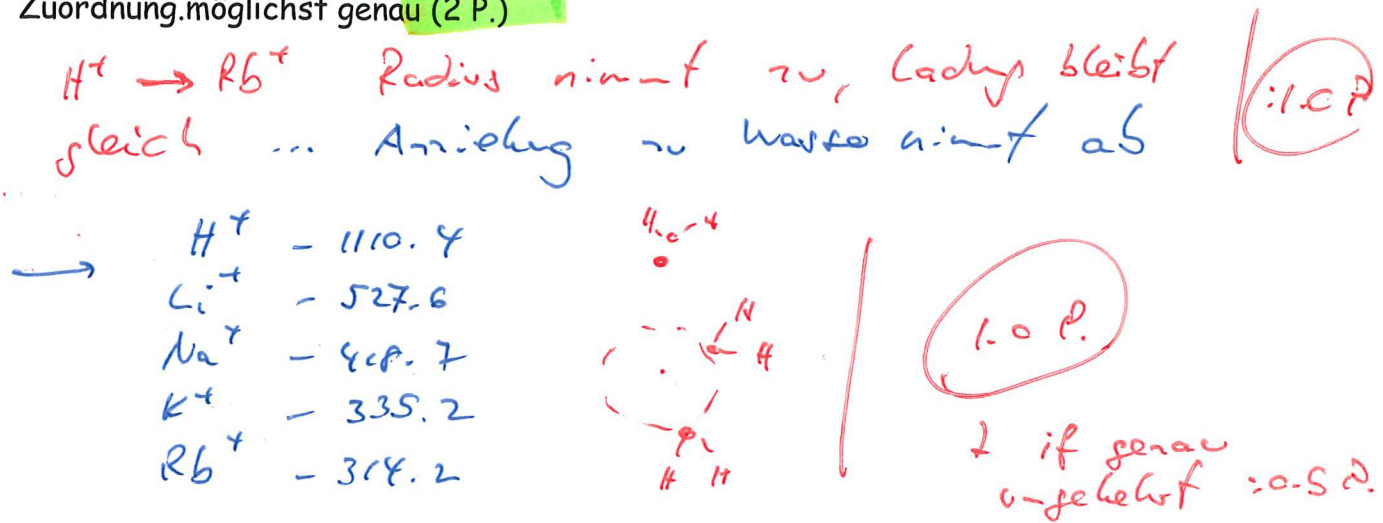 Zuordnung.möglichst genau (2 P.)
H⁺ → Rb⁺ Radius nimmt zu, Ladung bleibt :1.0 P
gleich ... Anziehung zu Wasser nimmt ab
→ H⁺ - 1110.4
Li⁺ - 527.6
Na⁺ - 418.7
K⁺ - 335.2
Rb⁺ - 314.2
H O H
H
H
H H
1.0 P.
if genau
umgekehrt :0.5 P.